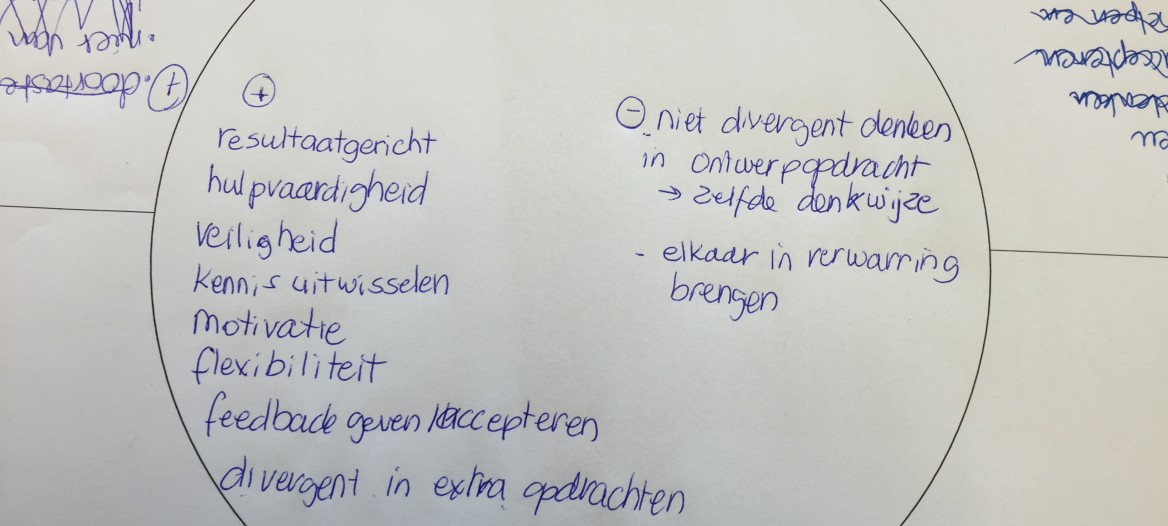 +
resultaatgericht
hulpvaardigheid
veiligheid
kennis uitwisselen
motivatie
flexibiliteit
feedback geven / accepteren
divergent in extra opdrachten
- niet divergent denken
in ontwerpopdracht
→ zelfde denkwijze
- elkaar in verwarring
brengen
+